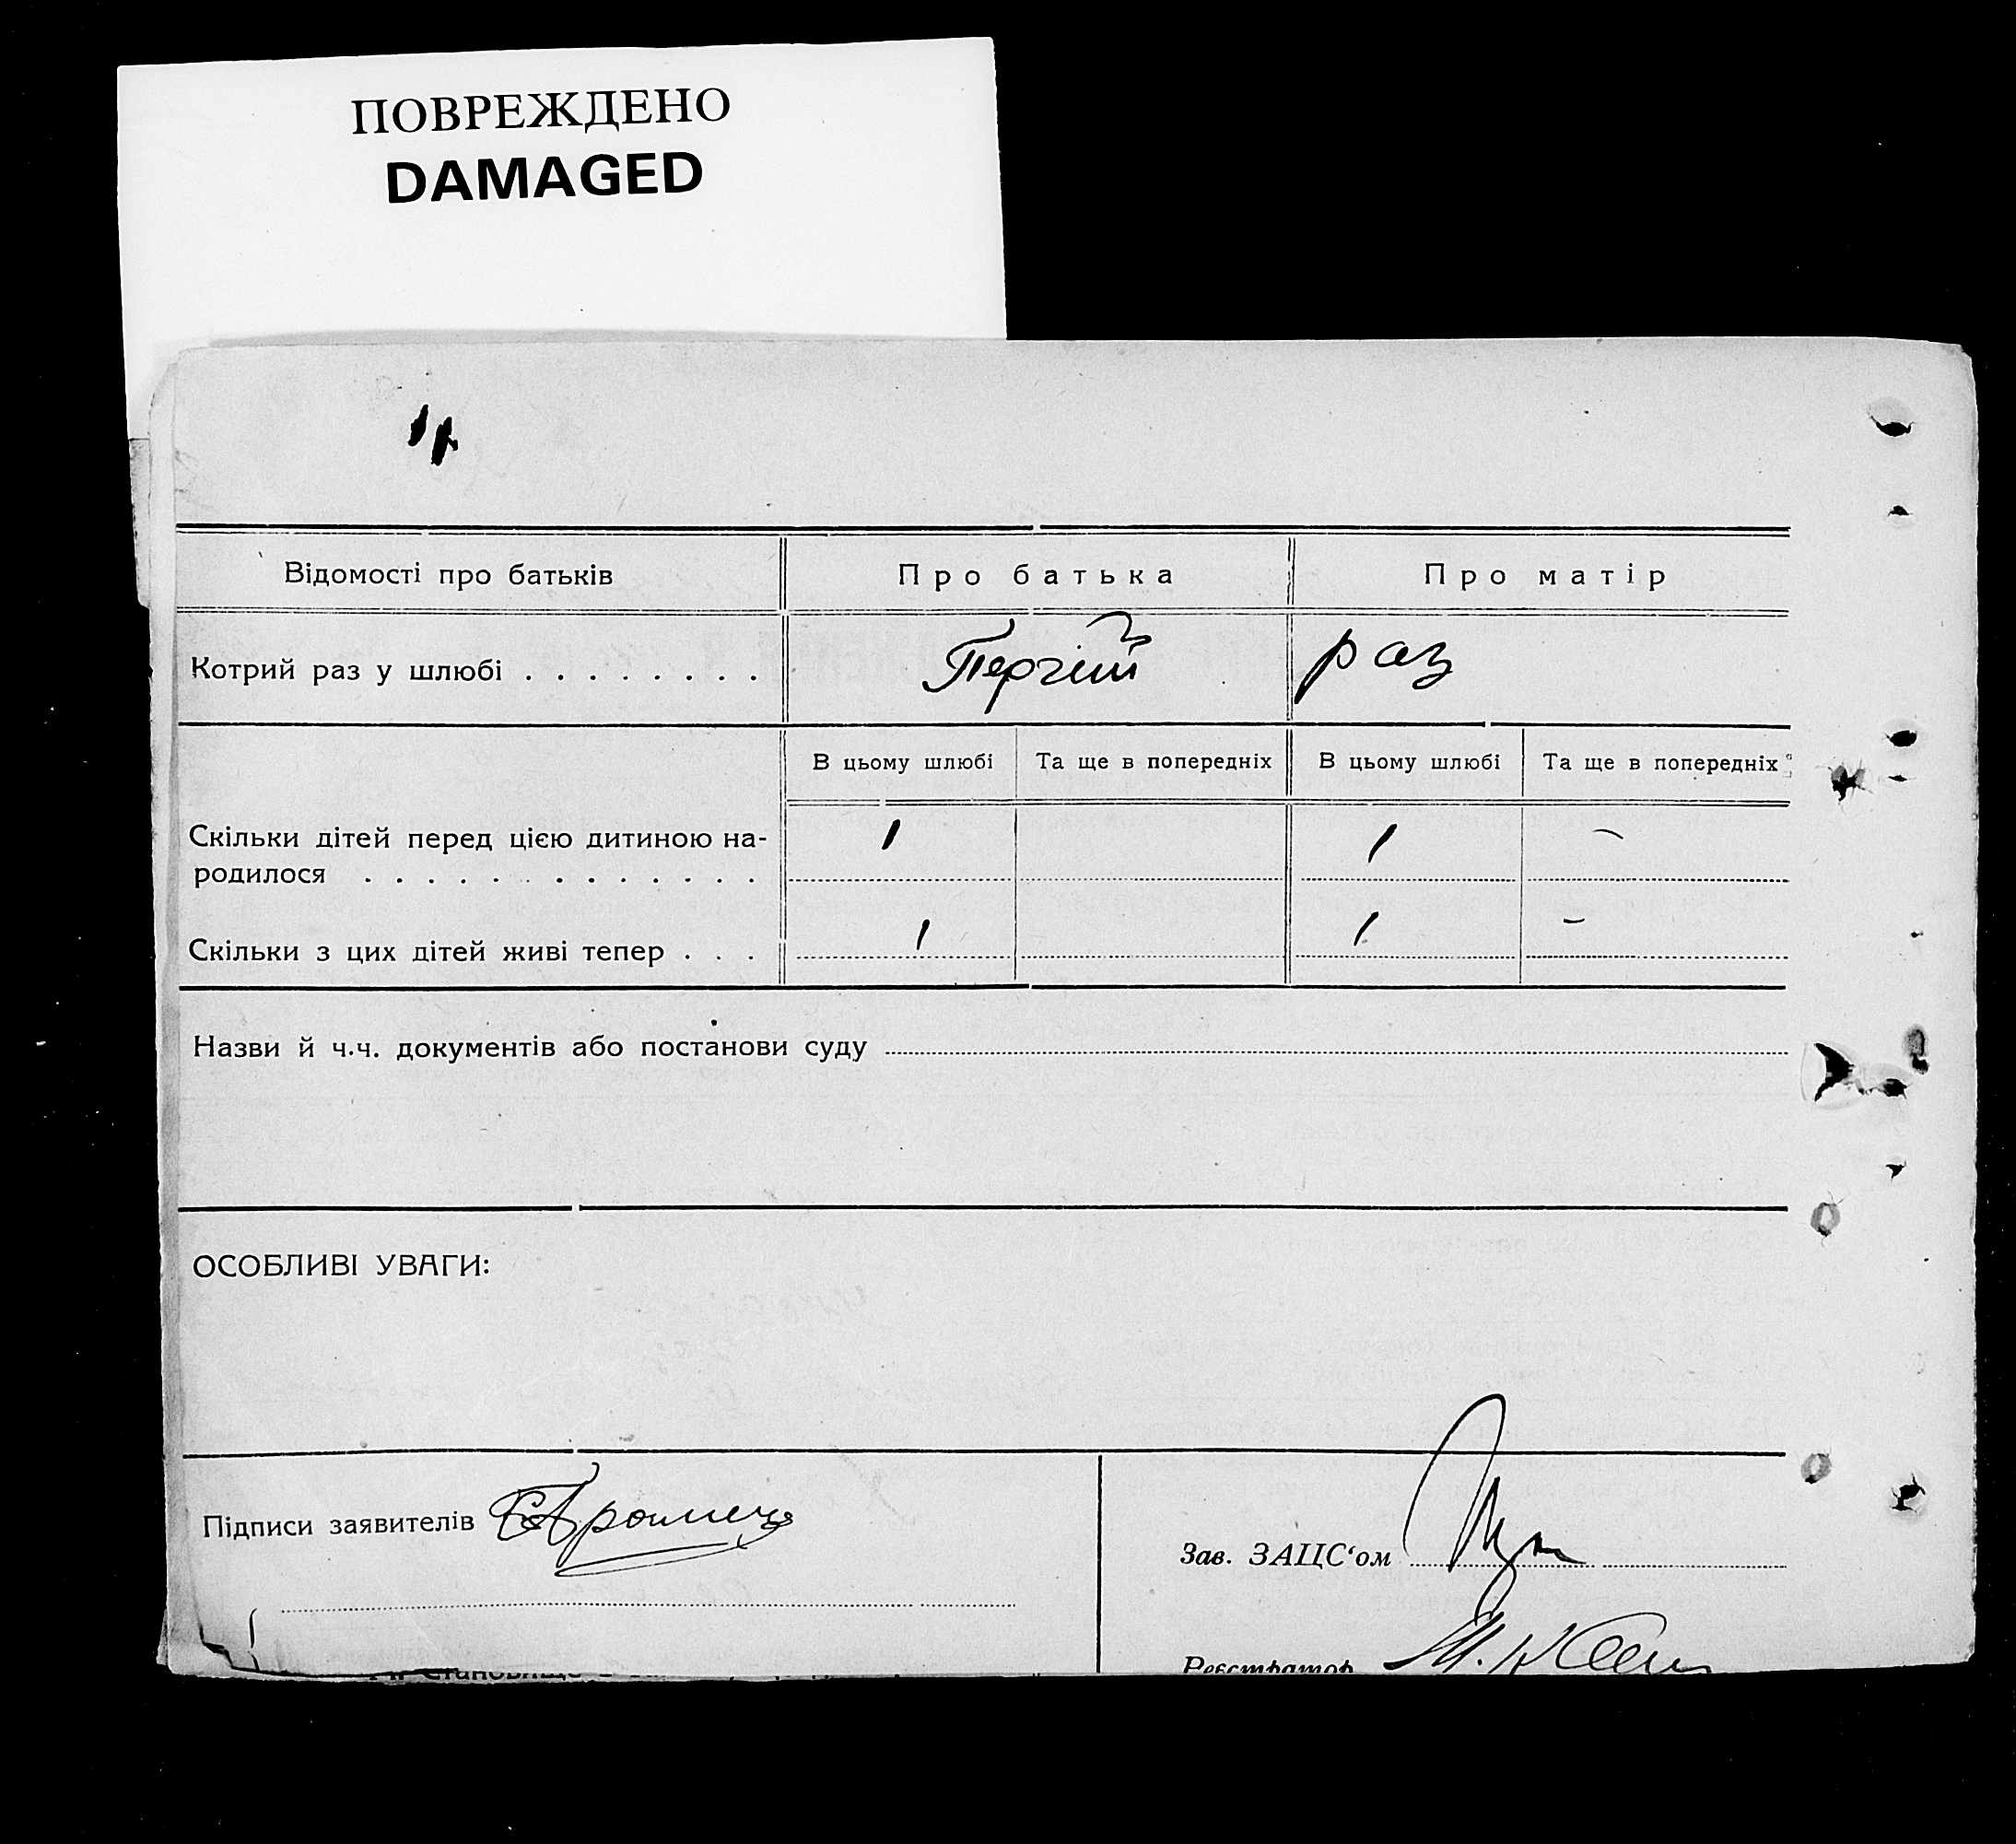 ПОВРЕЖДЕНО
DAMAGED
Відомості про батьків Про батька Про матір
Котрий раз у шлюбі . . . . . . . . Перший раз
В цьому шлюбі Та ще в попередніх В цьому шлюбі Та ще в попередніх
Скільки дітей перед цією дитиною на-
родилося . . . . . . . . . . . . . 1 1 –
Скільки з цих дітей живі тепер . . . 1 1 –
Назви й ч.ч. документів або постанови суду
ОСОБЛИВІ УВАГИ:
Підписи заявителів
Зав. ЗАЦС‘ом
Реєстратор